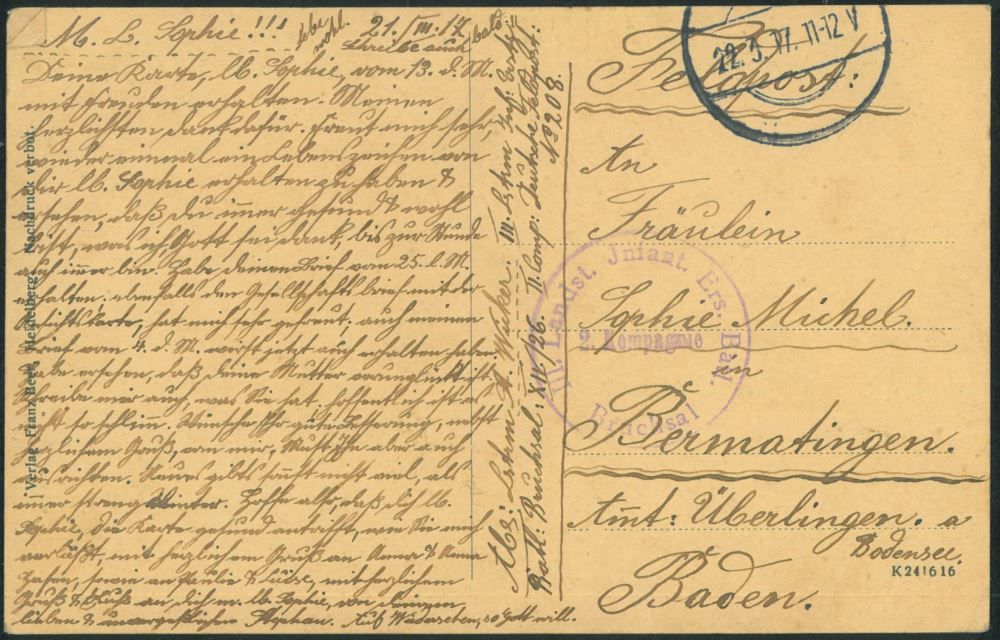 M. L. Sophie!!! 21./III. 17.
lebe wohl. schreibe auch bald.
Deine Karte, lb. Sophie, vom 13. d. M.
mit Freuden erhalten. Meinen
herzlichsten Dank dafür. Freut mich sehr
wieder einmal ein Lebenszeichen von
dir lb. Sophie erhalten zu haben &
ersehen, daß du immer gesund & wohl
bist, was ich, Gott sei dank, bis zur Stunde
auch immer bin. Habe deinen Brief vom 25. l. M.
erhalten. ebenfalls den Gesellschaftsbrief mit der
Ansichtskarte, hat mich sehr gefreut. auch meinen
Brief vom 4. d. M. wirst jetzt auch erhalten haben.
Habe ersehen, daß deine Mutter verunglückt ist,
Schreibe mir auch, was Sie hat, hoffentlich ist es
nicht so schlimm. Wünsche Ihr gute Besserung, nebst
herzlichem Gruß, von mir, mußt Ihr aber auch
ausrichten. Neues gibts sonst nicht viel, als
immer streng Winter. Hoffe alls, daß dich lb.
Sophie, die Karte gesund antrifft, wie Sie mich
verläßt, mit herzlichem Gruß an Anna &
sowie an Paulie & mit herzlichem
Gruß & Kuß an dich m. lb. Sophie, von deinem
lieben & unvergeßlichen Stephan. Auf Wiedersehen, so Gott will.
Abs: Lstrm. A. Wicker. III. Lstrm. Inf. Ersatz=
Batl: Bruchsal. XIV/26. II. Comp: Deutsche Feldpost:
No 208.
Verlag Franz Beer, Heidelberg. Nachdruck verbot.
22.3.17. 11-12 V
Feldpost:
An
Fräulein
Sophie Michel.
in
Bermatingen.
Amt: Überlingen. a
Bodensee.
Baden.
III. Landst. Infant. Ers. Batl.
2. Kompagnie
Bruchsal
K241616